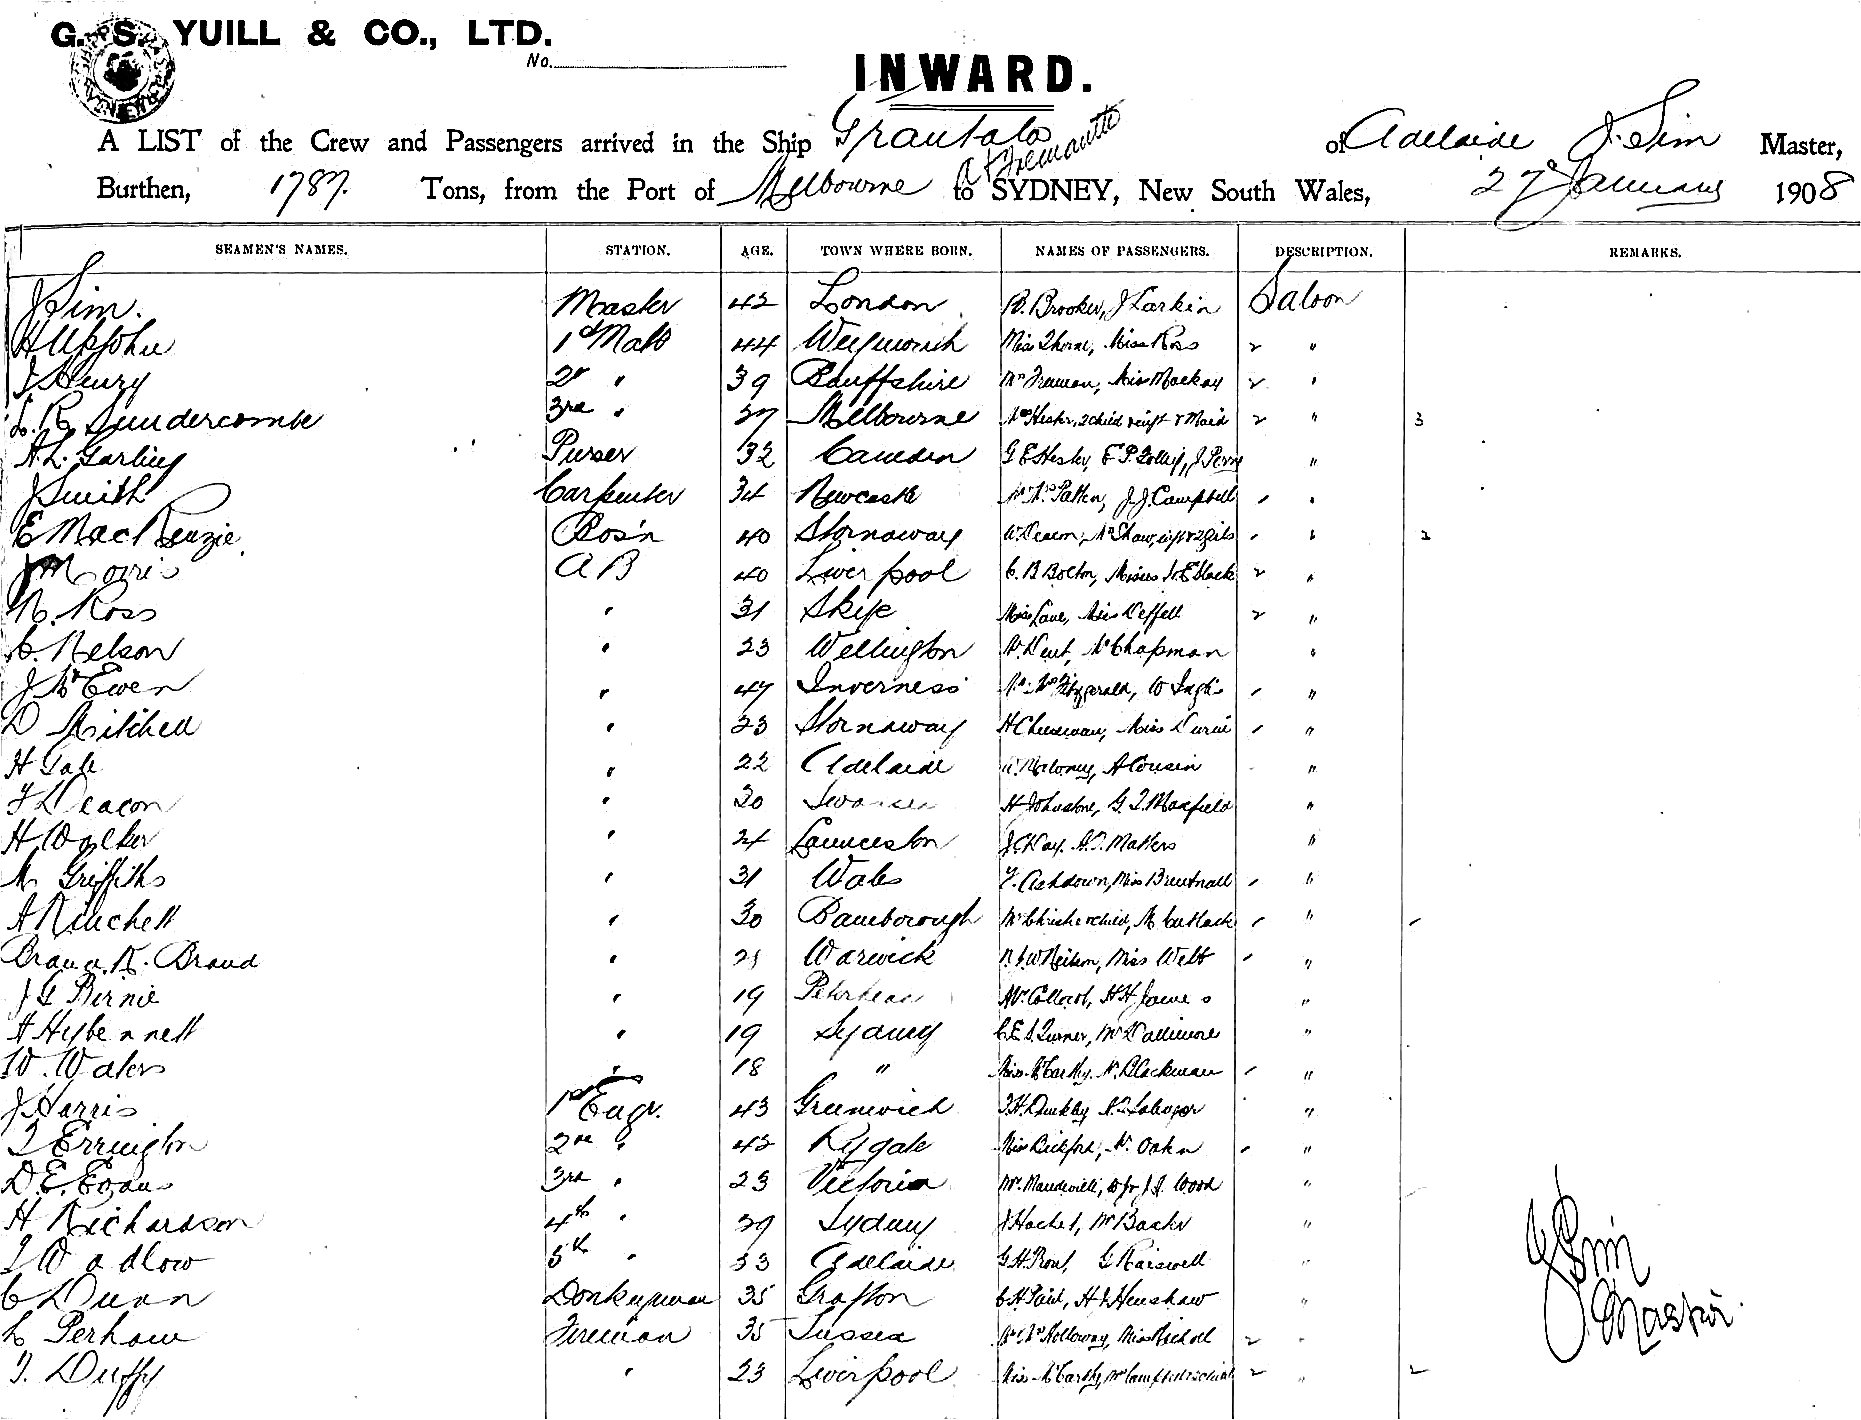 G. S. YUILL & CO., LTD.
No.
INWARD.
A LIST of the Crew and Passengers arrived in the Ship Grantala of Adelaide J. Sim Master,
Burthen, 1787. Tons, from the Port of Melbourne & Fremantle to SYDNEY, New South Wales, 27 January 1908
SEAMEN'S NAMES. STATION. AGE. TOWN WHERE BORN. NAMES OF PASSENGERS. DESCRIPTION. REMARKS.
J Sim. Master 42 London B. Brooker, J Larkin Saloon
H Upjohn 1st Mate 44 Miss Thorne, Miss Ross 2 "
J Henry 2nd " 39 Banffshire Mr Freeman, Miss Mackay 2 "
L. R. Sundercombe 3rd " 27 Melbourne Mrs Hester, 2 child & Maid 2 " 3
A. L. Garling Purser 32 Camden G E Hester, "
J Smith Carpenter 34 Newcastle Mr Mrs Patten, J. J. Campbell "
E MacKenzie Bos'n 40 Stornaway W. Deacon, Mr Shaw, " 2
J Morris A B 40 Liverpool C. B Bolton, Misses 2 "
N. Ross " 31 Skye Miss Lane, Miss Deffell 2 "
C. Nelson " 23 Wellington Mr Chapman "
J McEwen " 47 Inverness Mr Mrs Fitzgerald, W Inglis "
D Mitchell " 23 Stornaway H Cheeseman, Miss Durie "
H Gale " 22 Adelaide Maloney, A Cousin "
F Deacon " 20 Swansea H Johnstone, G. T. Maxfield "
H. Walker " 24 Launceston J C Day. Matters "
M Griffiths " 31 Wales F. Ashdown, Miss Brentnall "
A " 30 Bamborough "
Brand " 21 Warwick Neilson, Miss Webb "
J G Birnie " 19 H H James "
" 19 Sydney C. E. S. Turner, Mr Dallimore "
W. Waters " 18 " Miss McCarthy. Blackman "
J Harris 1st Engr. 43 Greenwich "
T Errington 2nd " 42 Rygate Miss Bickford, "
D. E. Evans 3rd " 23 Victoria Mr. Mandeville, Wood "
H Richardson 4th " 29 Sydney "
T Wadlow 5th " 33 Adelaide G. H. Prout, G "
C Dunn Donkeyman 35 Grafton H J Henshaw "
L Perham Fireman 35 Sussex Mr Mrs Holloway, Miss Nicholl 2 "
T. Duffy " 23 Liverpool Miss McCarthy, Mr Campbell 2 " 2
J Sim
Master.